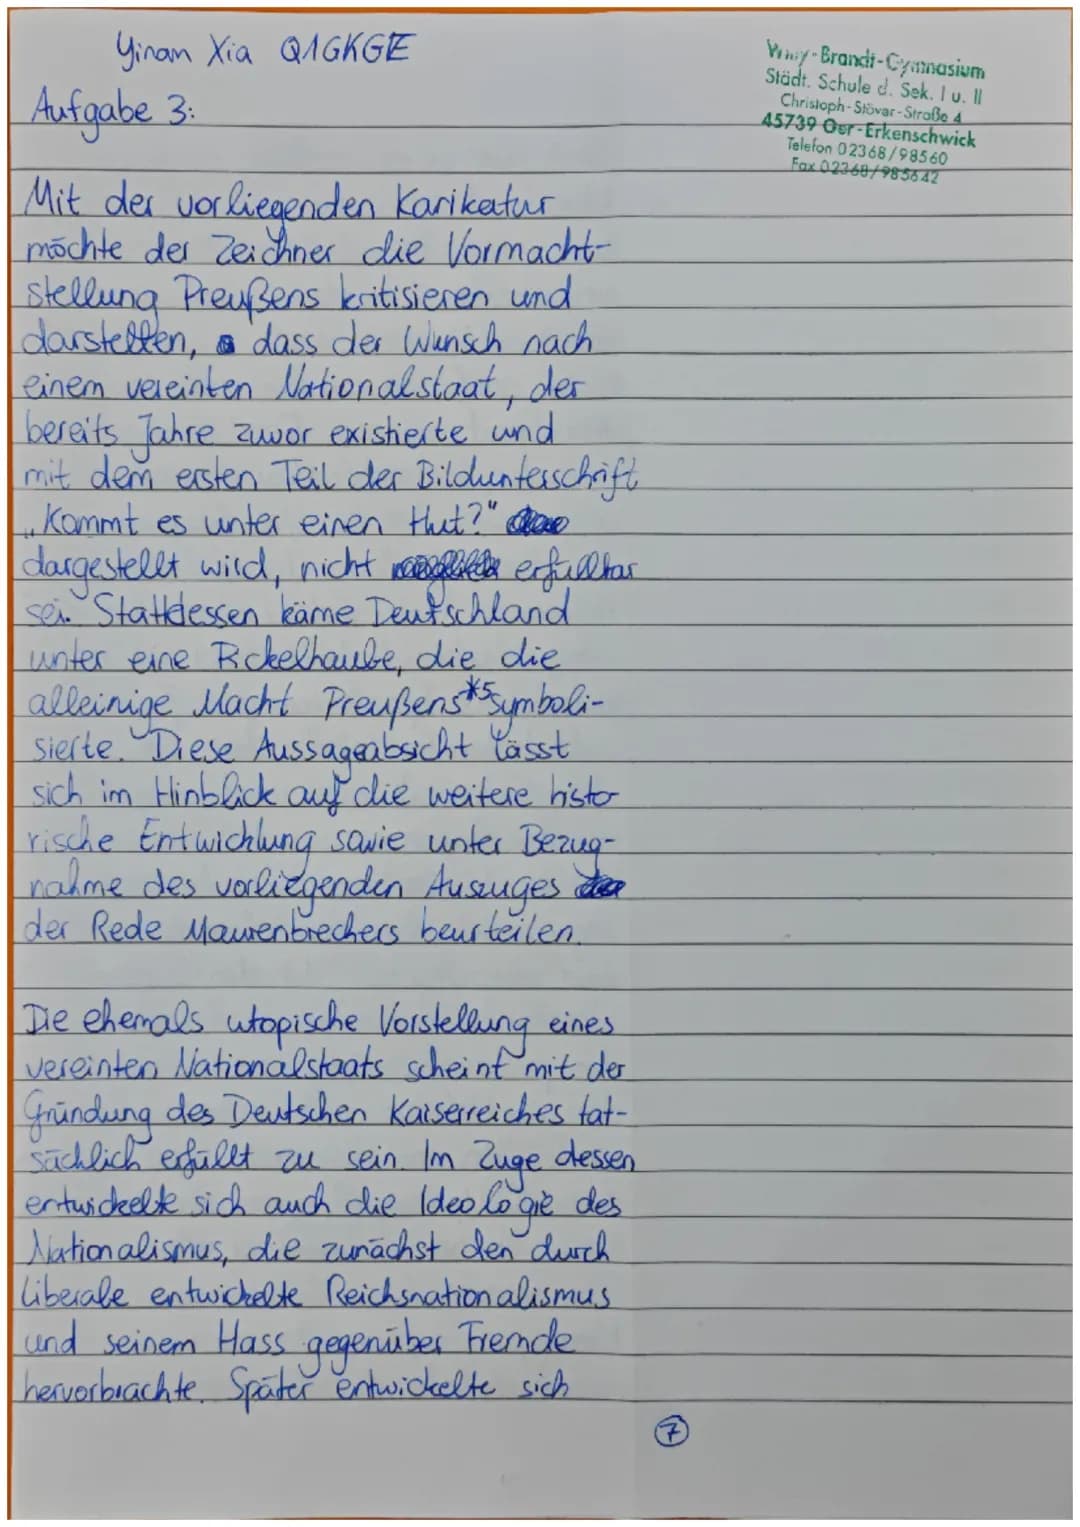 Yinan Xia Q1GKGE
Willy-Brandt-Gymnasium
Städt. Schule d. Sek. I u. II
Christoph-Stöver-Straße 4
45739 Oer-Erkenschwick
Telefon 02368/98560
Fax 02368/985642
Aufgabe 3:
Mit der vorliegenden Karikatur
möchte der Zeichner die Vormacht-
stellung Preußens kritisieren und
darstellen, dass der Wunsch nach
einem vereinten Nationalstaat, der
bereits Jahre zuvor existierte und
mit dem ersten Teil der Bildunterschrift
„Kommt es unter einen Hut?"
dargestellt wird, nicht erfüllbar
sei. Stattdessen käme Deutschland
unter eine Pickelhaube, die die
alleinige Macht Preußens *5 symboli-
sierte. Diese Aussageabsicht lässt
sich im Hinblick auf die weitere histo-
rische Entwicklung sowie unter Bezug-
nahme des vorliegenden Auszuges
der Rede Maurenbrechers beurteilen.
Die ehemals utopische Vorstellung eines
vereinten Nationalstaats scheint mit der
Gründung des Deutschen Kaiserreiches tat-
sächlich erfüllt zu sein. Im Zuge dessen
entwickelte sich auch die Ideologie des
Nationalismus, die zunächst den durch
Liberale entwickelte Reichsnationalismus
und seinem Hass gegenüber Fremde
hervorbrachte. Später entwickelte sich
7